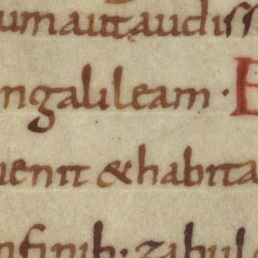 um autaudiss
ngalileam · E
uenit & habita
nfinib; zabul